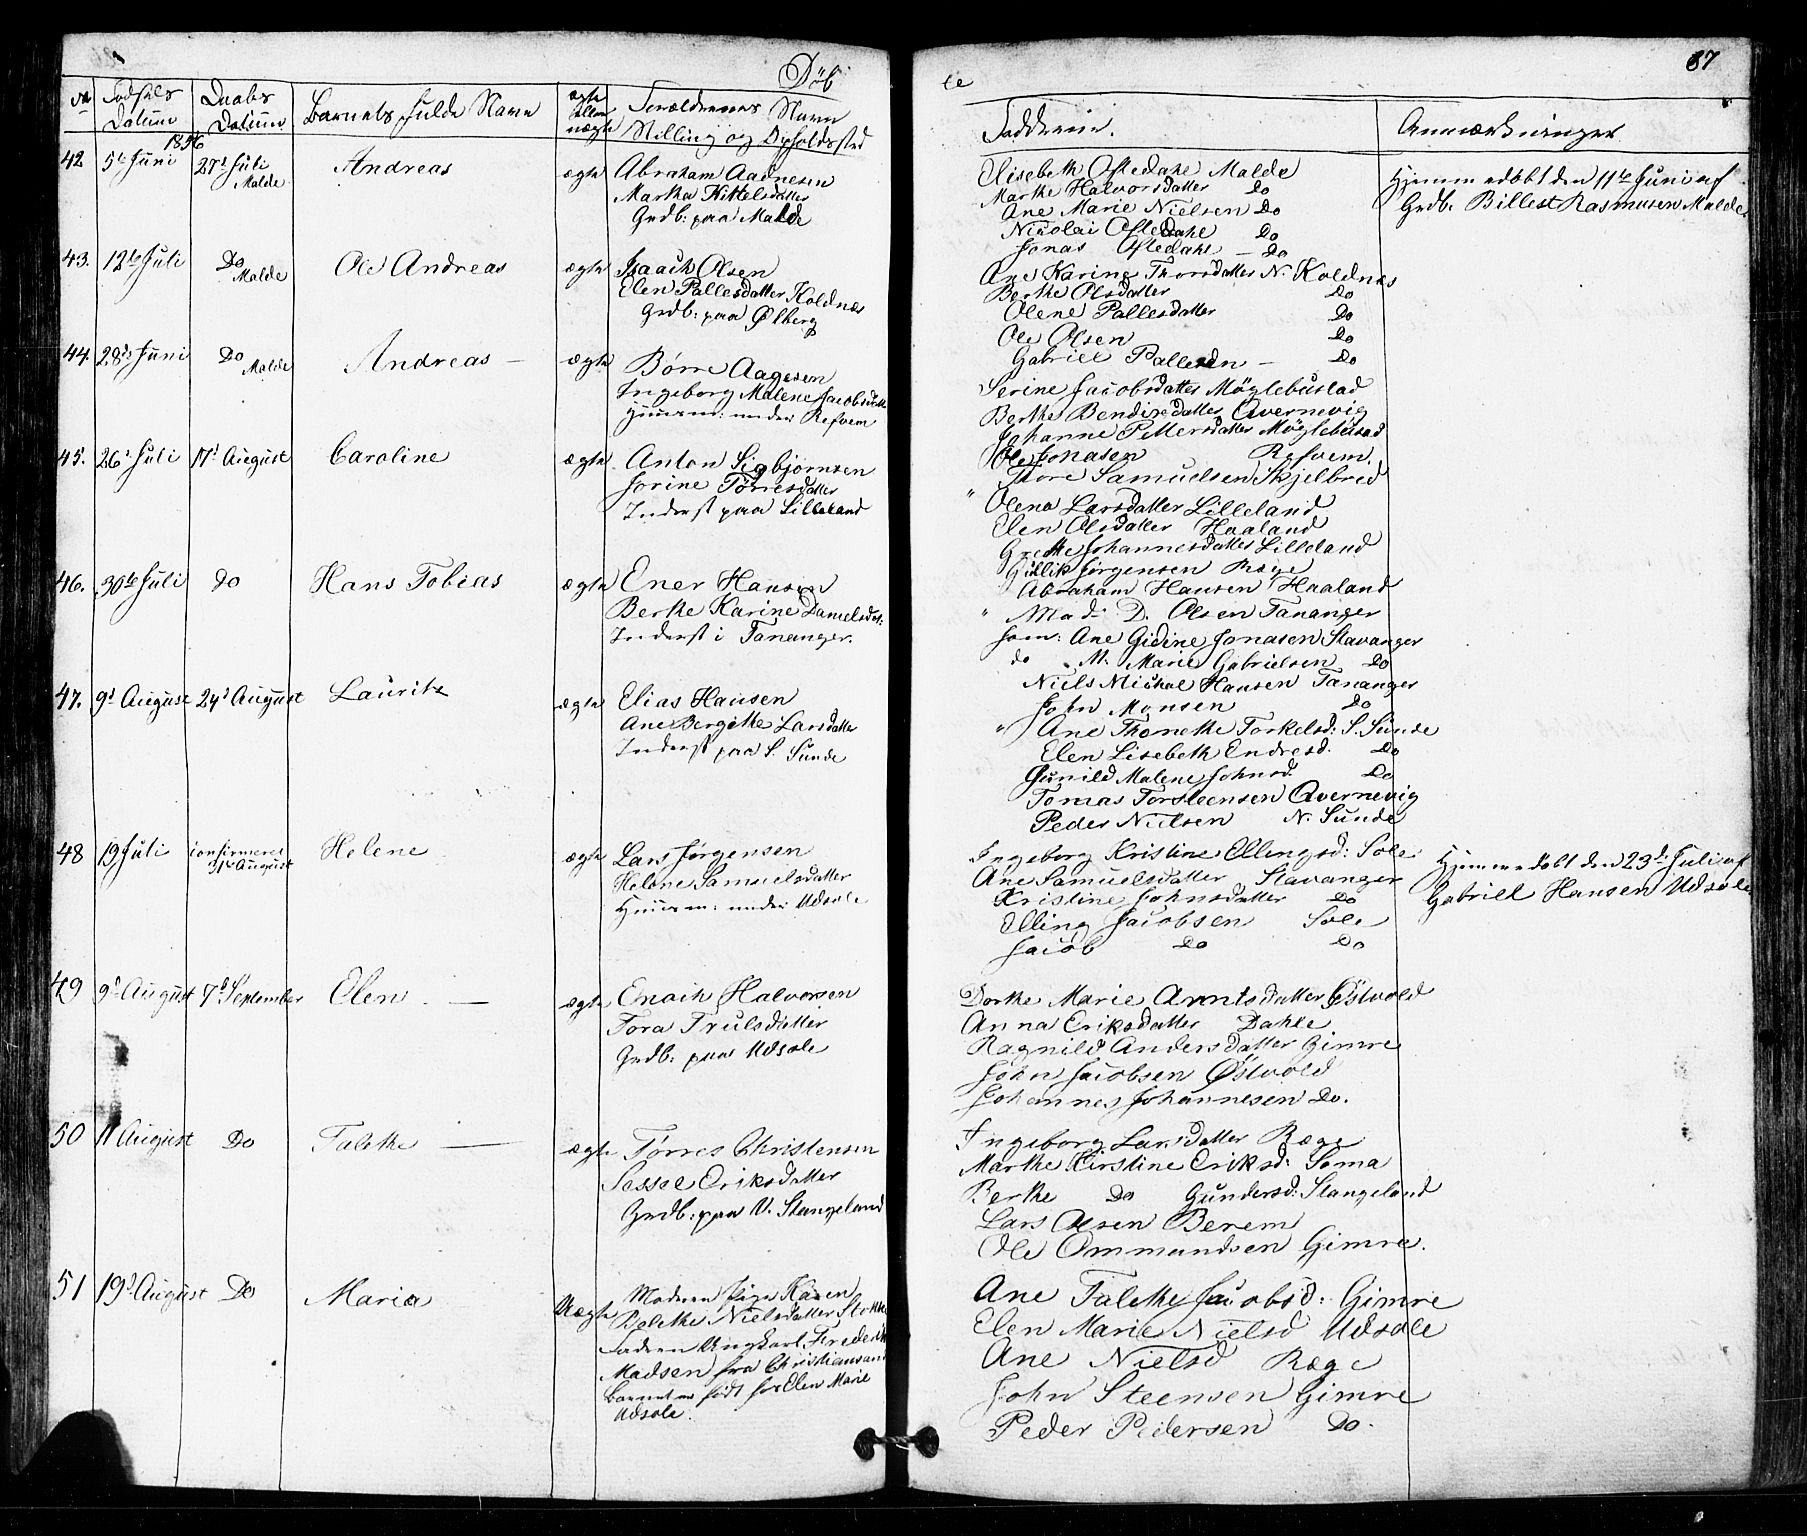 Døb
te
87
No
Fødsels Datum
Daabs Datum
Barnets fulde Navn
ægte eller uægte
Forældrenes Navn
Stilling og Opholdssted
Fadderne.
Anmærkninger
1856
42 5te Juni 27d Juli Malde Andreas ægte
Abraham Aadnesen
Martha Kittelsdatter
Grdb: paa Malde
Elisebeth Oftedahl Malde
Marthe Halvorsdatter Do
Ane Marie Nielsen Do
Nicolai Oftedahl Do
Jonas Oftedahl — Do
Hjemmedøbt den 11te Juni af
Grdb. Billest Rasmusen Malde
43. 12te Juli Do Malde Ole Andreas ægte
Isaach Olsen
Elen Pallesdatter Koldnæs
Grdb: paa Ølberg
Ane Karine Thorsdatter N. Koldnæs
Berthe Olsdatter Do
Olene Pallesdatter Do
Ole Olsen Do
Gabriel Pallesen — Do
44. 28de Juni Do Malde Andreas — ægte
Børre Aagesen
Ingeborg Malene Jacobsdatter
Huusm: under Refvem
Serine Jacobsdatter Møglebustad
Berthe Bendixdatter Avernevig
Johanne Pettersdatter Møglebustad
Ole Jonasen Refvem.
Tore Samuelsen Skjelbred
45. 26d Juli 17d August Caroline ægte
Anton Sigbjørnsen
Jorine Tørresdatter
Inderst paa Lilleland
" Olena Larsdatter Lilleland
Elen Olsdatter Haaland
Grethe Johannesdatter Lilleland
Gullik Jørgensen Ræge
Abraham Hansen Haaland
46. 30te Juli do Hans Tobias ægte
Ener Hansen
Berthe Karine Danielsdt:
Inderst i Tananger.
" Mad. D. Olsen Tananger
Jom: Ane Gidine Jonasen Stavanger
do M. Marie Gabrielsen Do
Niels Mickal Hansen Tananger
John Monsen Do
47. 9d August 24d August Lauritz ægte
Elias Hansen
Ane Bergitte Larsdatter
Inderst paa S. Sunde
" Ane Thonethe Torkelsd: S. Sunde
Elen Lisebeth Endresd: Do
Gunild Malene Johnsd. Do
Tomas Torsteensen Avernevig
Peder Nielsen N. Sunde
48 19 Juli confirmeret 31te August Helene ægte
Lars Jørgensen
Helene Samuelsdatter
Huusm: under Udsole
Ingeborg Kristine Ellingsd: Sole
Ane Samuelsdatter Stavanger
Kristine Johnsdatter Do
Elling Jacobsen Sole
Jacob Do Do
Hjemmedøbt den 23d Juli af
Gabriel Hansen Udsole
49 9d August 7d September Elen — ægte
Enoch Halvorsen
Tora Trulsdatter
Grdb: paa Udsole
Dorthe Marie Arntsdatter Østvold
Anna Eriksdatter Dahle
Ragnild Andersdatter Gimre
John Jacobsen Østvold
Johannes Johannesen Do.
50 11 August Do Talethe — ægte
Tørres Christensen
Sessel Eriksdatter
Grdb: paa V. Stangeland
Ingeborg Larsdatter Ræge
Marthe Kirstine Eriksd: Soma
Berthe Do Gundersd: Stangeland
Lars Olsen Berem
Ole Ommundsen Gimre.
51 19d August Do Maria Uægte
Moderen Pige Karen
Bolethe Nielsdatter Stokke
Faderen Ungkarl Frederik
Madsen fra Christiansand
Barnet er født hos Elen Marie
Udsole.
Ane Talethe Jacobsd: Gimre
Elen Marie Nielsd Udsole
Ane Nielsd Ræge
John Steensen Gimre
Peder Pedersen Do.